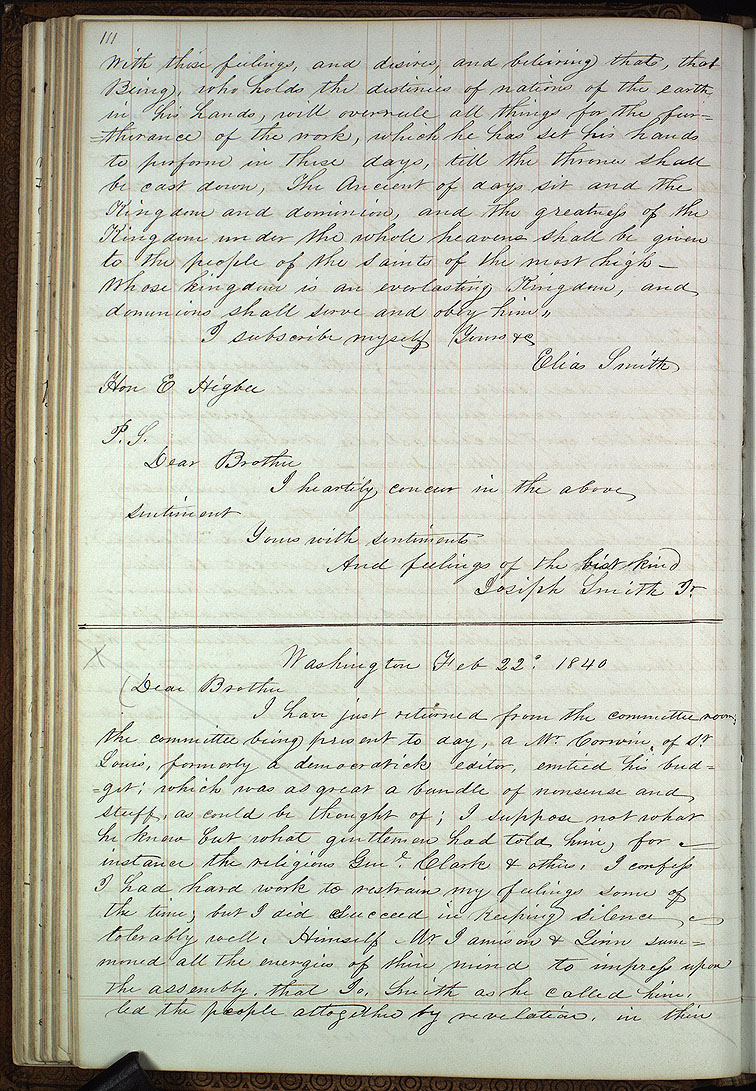 111
With these feelings, and desires, and believing thats, that
Being, who holds the destinies of nations of the earth
in his hands, will overrule all things for the fur=
=therance of the work, which he has set his hands
to perform in these days, till the thrones shall
be cast down, The Ancient of days sit and the
Kingdom and dominion, and the greatness of the
Kingdom under the whole heavens shall be given
to the people of the saints of the most high—
Whose kingdom is an everlasting Kingdom, and
dominions shall serve and obey him,,
I subscribe myself Yours &c
Elias Smith
Hon E Higbee
P.S.
Dear Brother
I heartily concur in the above
sentiment
Yours with sentiments
And feelings of the best kind
Joseph Smith Jr
X
Washington Feb 22d. 1840
(Dear Brother
I have just returned from the committee room;
the committee being present to day, a Mr Corwin, of St
Louis, formerly a democratick editor, emtied his bud=
=get; which was as great a bundle of nonsense and
stuff, as could be thought of; I suppose not what
he knew but what gentlemen had told him, for
instance the religious Genl. Clark & others, I confess
I had hard work to restrain my feelings some of
the time, but I did succeed in keeping silence
tolerably well. Himself Mr Jamison & Linn sum=
moned all the energies of their mind to impress upon
the assembly, that Jo, Smith as he called him,
led the people altogether by revelation, in their